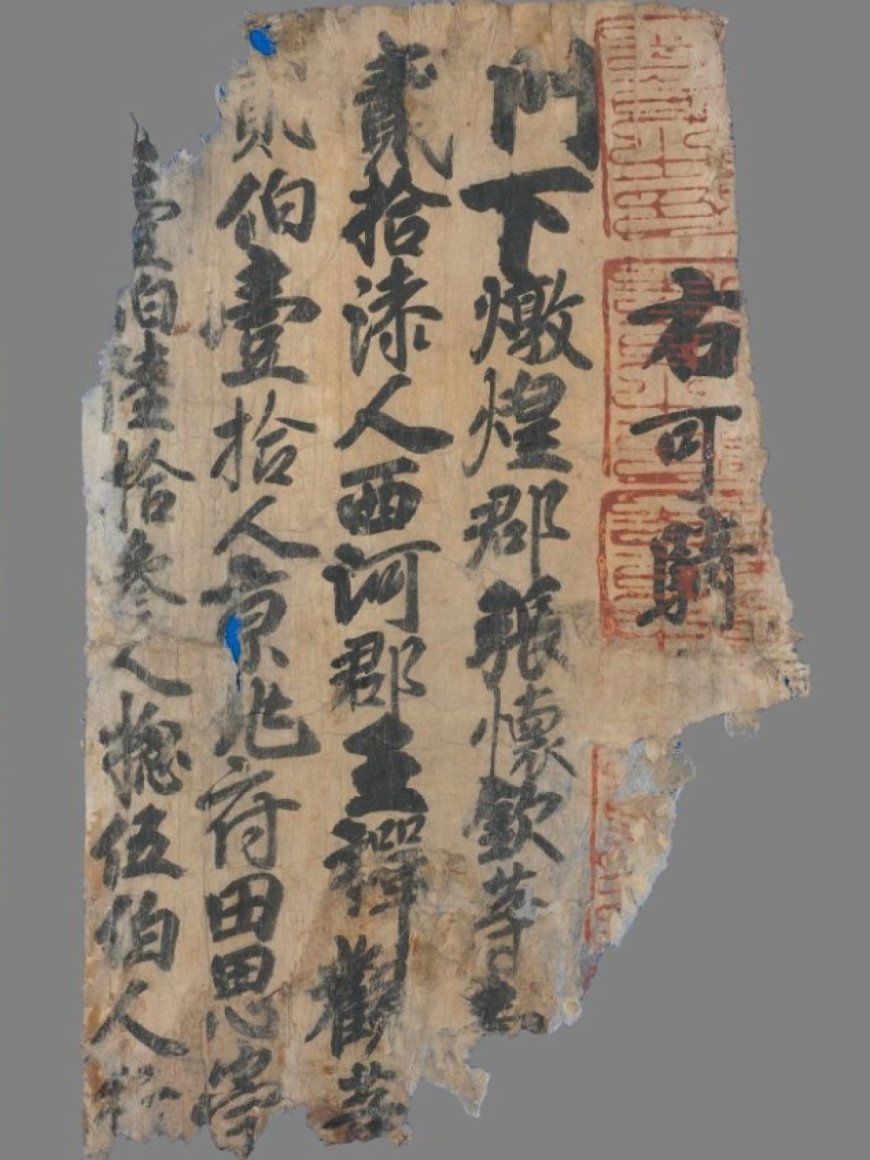 右可騎
門下燉煌郡張懷欽等
貳拾漆人西河郡王禪觀等
貳伯壹拾人京兆府田思崇
壹伯陸拾叁人揔伍伯人